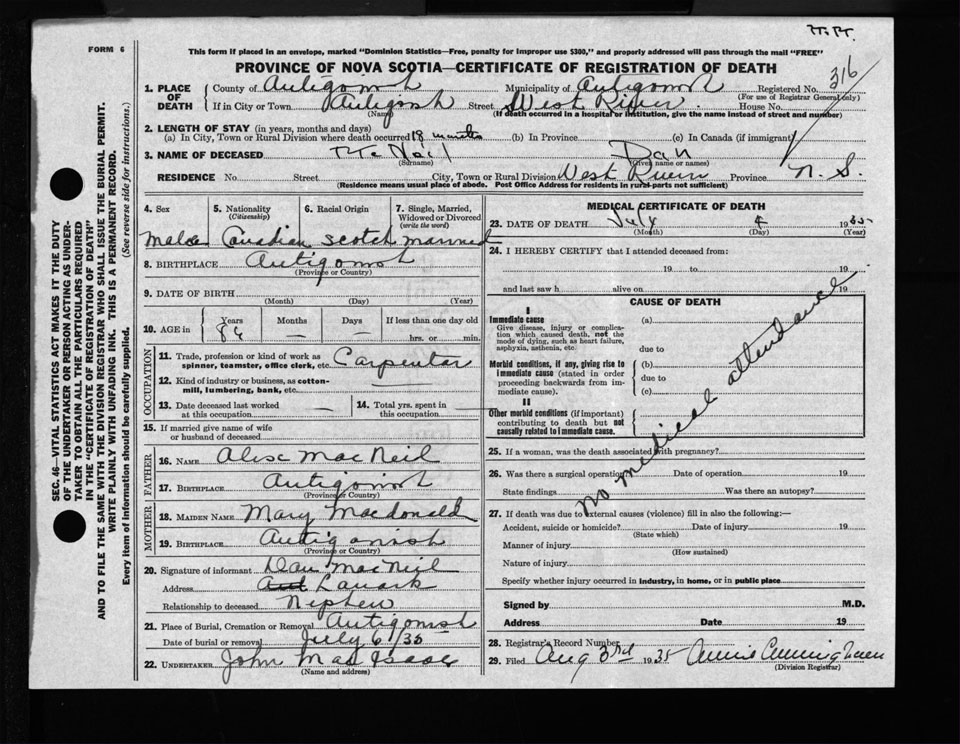 FORM 6
This form if placed in an envelope, marked "Dominion Statistics—Free, penalty for improper use $300," and properly addressed will pass through the mail "FREE"
PROVINCE OF NOVA SCOTIA—CERTIFICATE OF REGISTRATION OF DEATH
316
1. PLACE OF DEATH { County of Antigonish Municipality of Antigonish Registered No.
(For use of Registrar General only)
If in City or Town Antigonish Street West River House No.
(Name) (If death occurred in a hospital or institution, give the name instead of street and number)
2. LENGTH OF STAY (in years, months and days)
(a) In City, Town or Rural Division where death occurred 18 months (b) In Province (c) In Canada (if immigrant)
3. NAME OF DECEASED McNeil Dan
(Surname) (Given name or names)
RESIDENCE No. Street City, Town or Rural Division West River Province N. S.
(Residence means usual place of abode. Post Office Address for residents in rural parts not sufficient)
SEC. 46—VITAL STATISTICS ACT MAKES IT THE DUTY
OF THE UNDERTAKER OR PERSON ACTING AS UNDER-
TAKER TO OBTAIN ALL THE PARTICULARS REQUIRED
IN THE "CERTIFICATE OF REGISTRATION OF DEATH" AND TO FILE THE SAME WITH THE DIVISION REGISTRAR WHO SHALL ISSUE THE BURIAL PERMIT.
WRITE PLAINLY WITH UNFADING INK. THIS IS A PERMANENT RECORD.
Every item of information should be carefully supplied. (See reverse side for instructions.)
4. Sex 5. Nationality (Citizenship) 6. Racial Origin 7. Single, Married, Widowed or Divorced (write the word)
Male Canadian Scotch married
8. BIRTHPLACE Antigonish
(Province or Country)
9. DATE OF BIRTH
(Month) (Day) (Year)
10. AGE in { Years Months Days If less than one day old
86 — — hrs. or min.
OCCUPATION
11. Trade, profession or kind of work as spinner, teamster, office clerk, etc. Carpenter
12. Kind of industry or business, as cotton-mill, lumbering, bank, etc. —
13. Date deceased last worked at this occupation — 14. Total yrs. spent in this occupation —
15. If married give name of wife or husband of deceased
FATHER
16. NAME Alex MacNeil
17. BIRTHPLACE Antigonish
(Province or Country)
MOTHER
18. MAIDEN NAME Mary Macdonald
19. BIRTHPLACE Antigonish
(Province or Country)
20. Signature of informant Dan MacNeil
Address Lanark
Relationship to deceased Nephew
21. Place of Burial, Cremation or Removal Antigonish
Date of burial or removal July 6/35
22. UNDERTAKER John MacIsaac
(Name and address)
MEDICAL CERTIFICATE OF DEATH
23. DATE OF DEATH July 4 1935
(Month) (Day) (Year)
24. I HEREBY CERTIFY that I attended deceased from:
19 to 19
and last saw h alive on 19
CAUSE OF DEATH
I
Immediate cause (a)
Give disease, injury or complication which caused death, not the mode of dying, such as heart failure, asphyxia, asthenia, etc.
due to
Morbid conditions, if any, giving rise to immediate cause (stated in order proceeding backwards from immediate cause).
(b)
due to
(c)
II
Other morbid conditions (if important) contributing to death but not causally related to immediate cause.
No medical attendance
25. If a woman, was the death associated with pregnancy?
26. Was there a surgical operation Date of operation 19
State findings Was there an autopsy?
27. If death was due to external causes (violence) fill in also the following:—
Accident, suicide or homicide? Date of injury 19
(State which)
Manner of injury
(How sustained)
Nature of injury
Specify whether injury occurred in industry, in home, or in public place
Signed by M.D.
Address Date 19
28. Registrar's Record Number
29. Filed Aug 3rd 1935 Annie Cunningham
(Division Registrar)